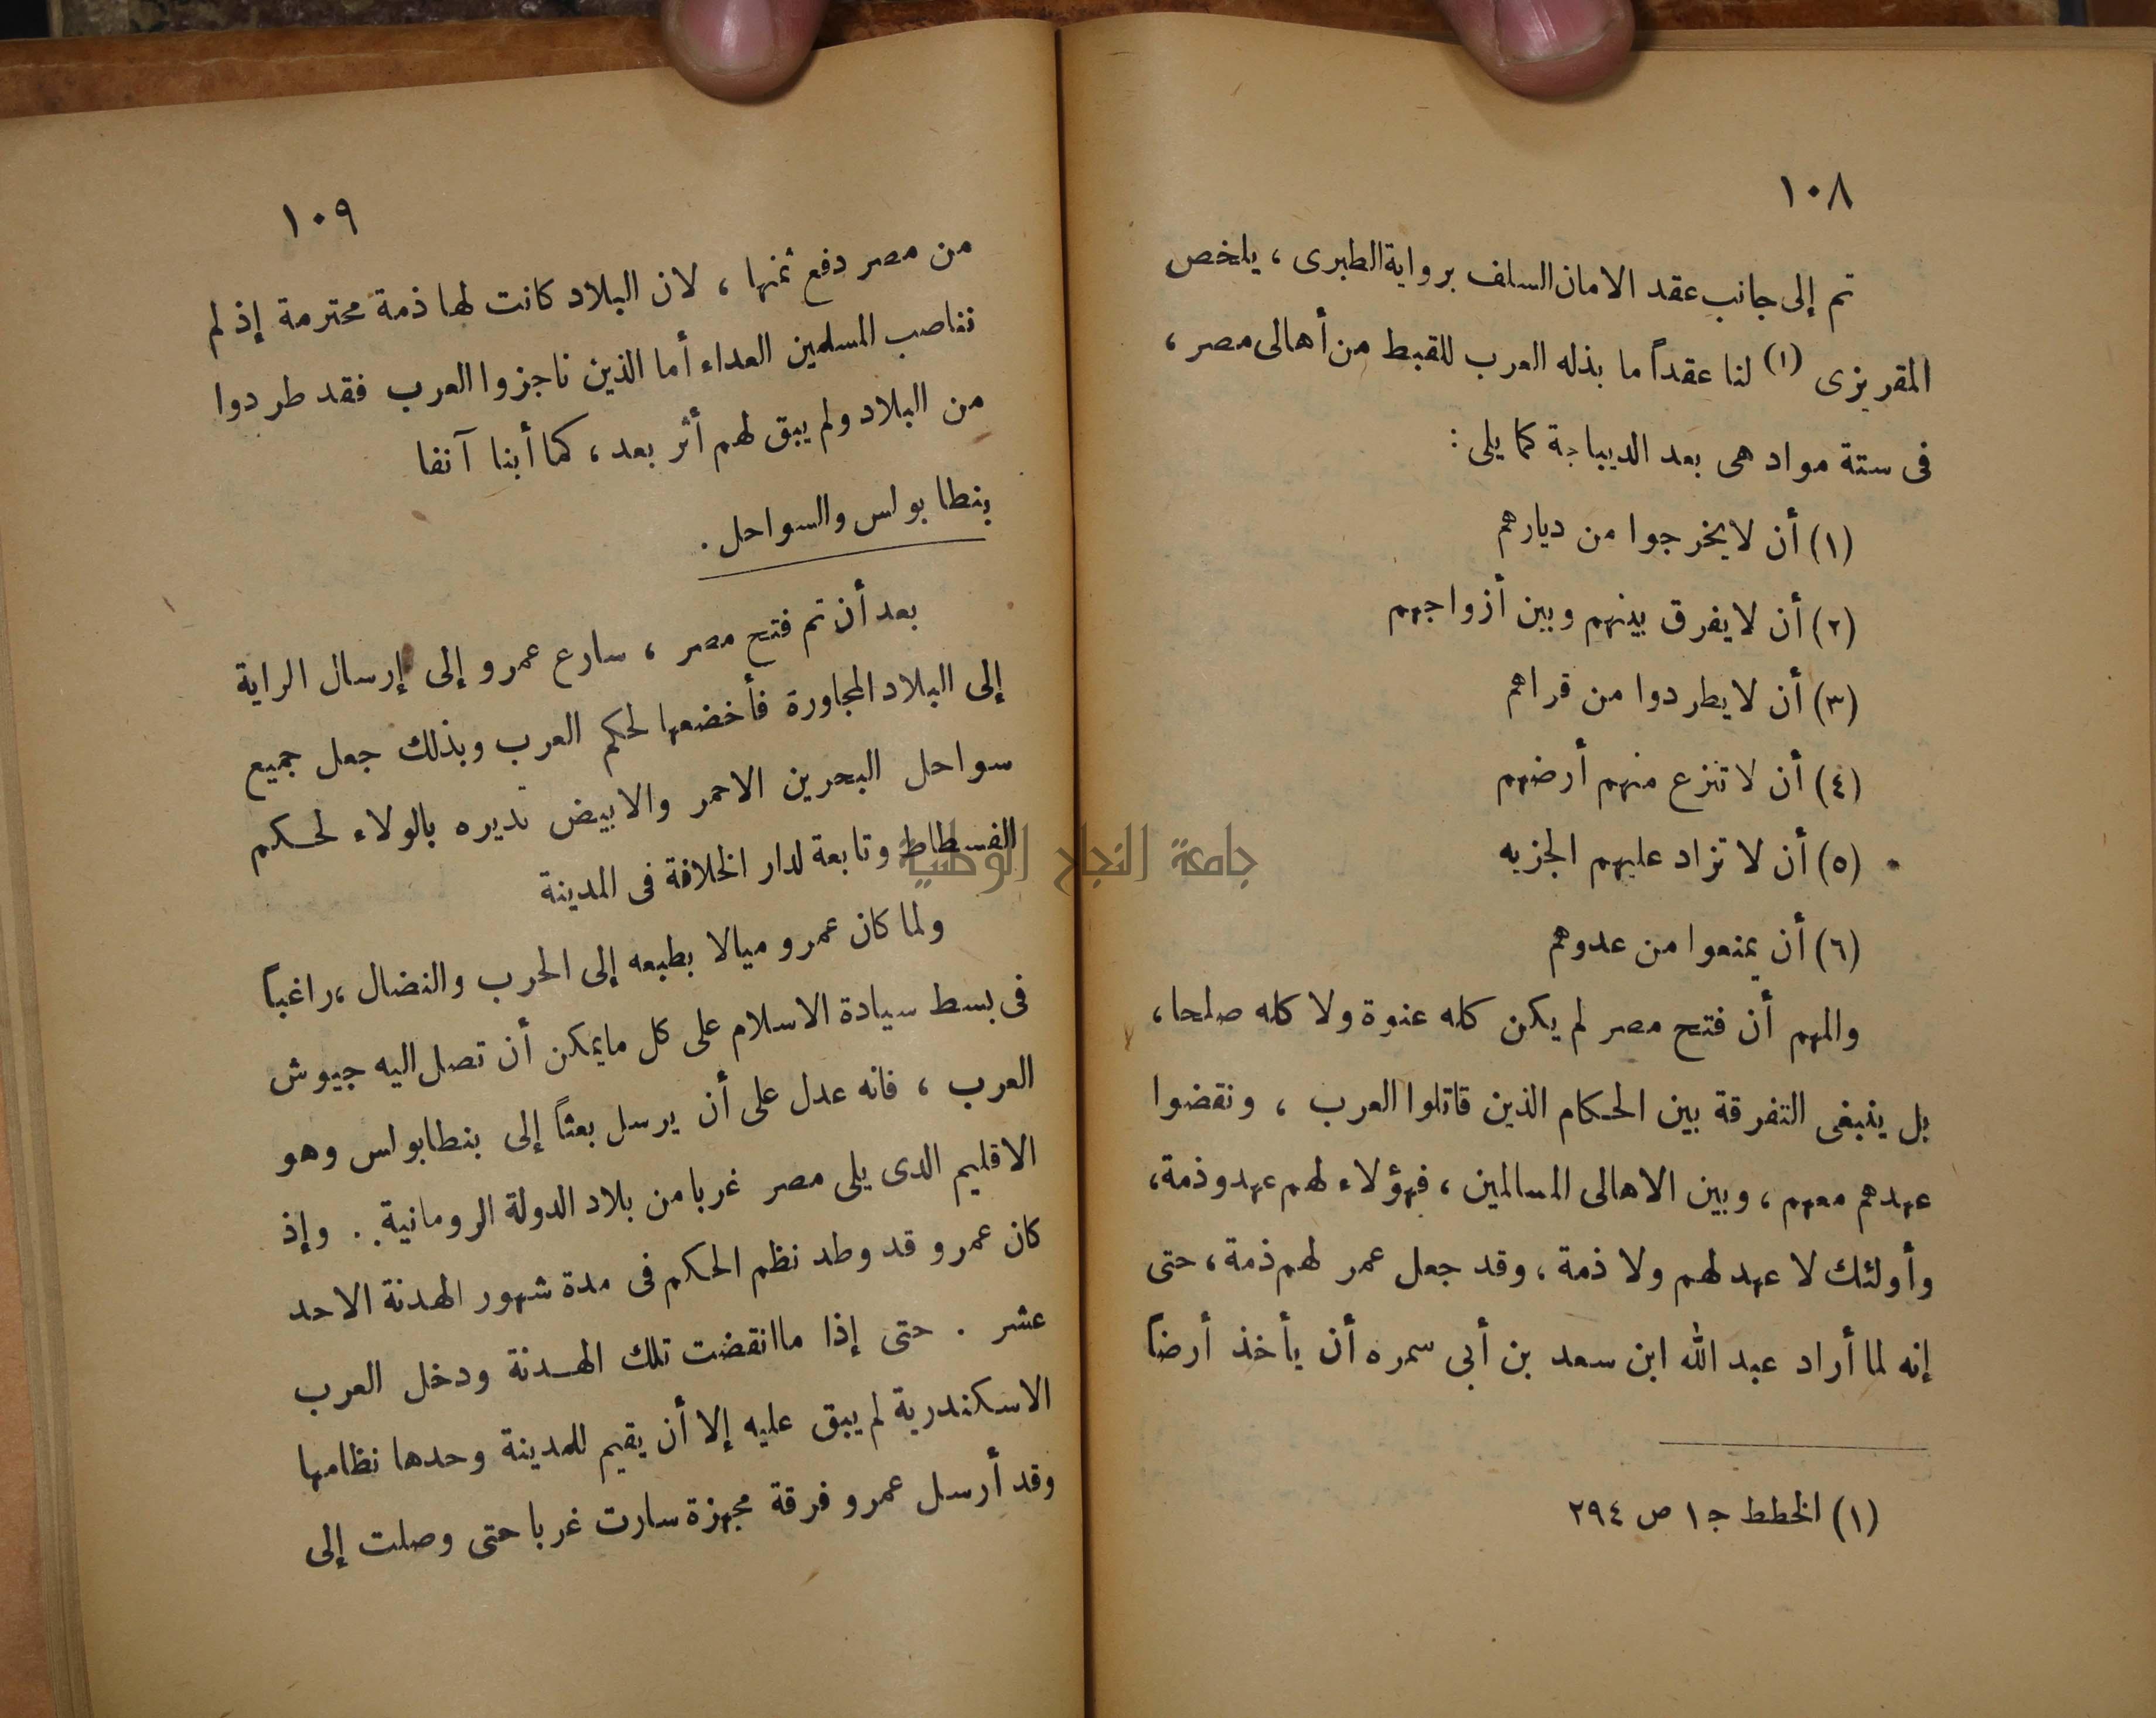 ١٠٨
تم إلى جانب عقد الامان السلف برواية الطبرى ، يلخص
المقريزى (١) لنا عقداً ما بذله العرب للقبط من أهالى مصر ،
فى ستة مواد هى بعد الديباجة كما يلى :
(١) أن لا يخرجوا من ديارهم
(٢) أن لا يفرق بينهم وبين أزواجهم
(٣) أن لا يطردوا من قراهم
(٤) أن لا تنزع منهم أرضهم
(٥) أن لا تزاد عليهم الجزيه
(٦) أن يمنعوا من عدوهم
والمهم أن فتح مصر لم يكن كله عنوة ولا كله صلحا ،
بل ينبغى التفرقة بين الحكام الذين قاتلوا العرب ، ونقضوا
عهدهم معهم ، وبين الاهالى المسالمين ، فهؤلاء لهم عهد وذمة ،
وأولئك لا عهد لهم ولا ذمة ، وقد جعل عمر لهم ذمة ، حتى
إنه لما أراد عبد الله ابن سعد بن أبى سمره أن يأخذ أرضاً
(١) الخطط ج ١ ص ٢٩٤
١٠٩
من مصر دفع ثمنها ، لان البلاد كانت لها ذمة محترمة إذ لم
تناصب المسلمين العداء أما الذين ناجزوا العرب فقد طردوا
من البلاد ولم يبق لهم أثر بعد ، كما أبنا آنفا
بنطا بولس والسواحل .
بعد أن تم فتح مصر ، سارع عمرو إلى إرسال الراية
إلى البلاد المجاورة فأخضعها لحكم العرب وبذلك جعل جميع
سواحل البحرين الاحمر والابيض تديره بالولاء لحكم
الفسطاط وتابعة لدار الخلافة فى المدينة
ولما كان عمرو ميالا بطبعه إلى الحرب والنضال ، راغباً
فى بسط سيادة الاسلام على كل مايمكن أن تصل اليه جيوش
العرب ، فانه عدل على أن يرسل بعثاً إلى بنطابولس وهو
الاقليم الدى يلى مصر غربا من بلاد الدولة الرومانية . وإذ
كان عمرو قد وطد نظم الحكم فى مدة شهور الهدنة الاحد
عشر . حتى إذا ماانقضت تلك الهدنة ودخل العرب
الاسكندرية لم يبق عليه إلا أن يقيم للمدينة وحدها نظامها
وقد أرسل عمرو فرقة مجهزة سارت غربا حتى وصلت إلى
جامعة النجاح الوطنية